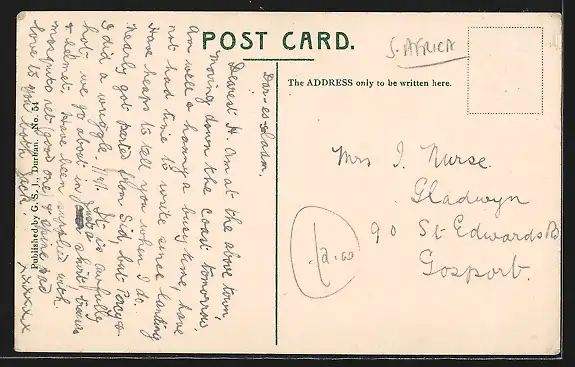 POST CARD.
S. AFRICA
The ADDRESS only to be written here.
Dar-es-Salaam,
Dearest H. Am at the above town,
moving down the coast tomorrow.
Am well & having a busy time, have
not had time to write since landing
Have heaps to tell you when I do.
Nearly got parted from Sid, but
I did a wriggle. It is awfully
hot. we go about in shirts,
& helmet. Have been supplied with
mosquito net (good one) &
love to you both Jack.
xxxxxx
Published by C.S.J., Durban. No. 34
Mrs J. Nurse.
Gladwyn
90 St Edwards Rd
Gosport.
12.00